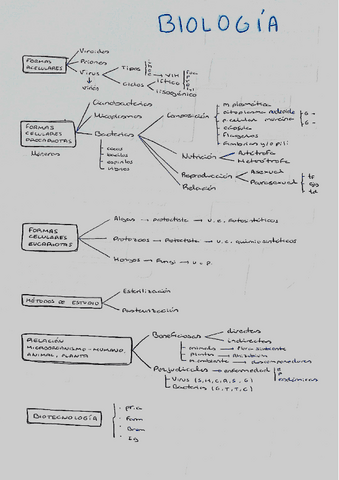 BIOLOGÍA
FORMAS ACELULARES
Viroides
Priones
Virus
virus
Tipos
Ciclos
VIH
lítico
lisogénico
FORMAS CELULARES PROCARIOTAS
Móneras
Cianobacterias
Micoplasmas
Bacterias
cocos
bacilos
espirilos
vibrios
Composición
m. plasmática
citoplasma nucleoide
p. celular mureína
G+
G-
cápsula
flagelos
fimbrias y/o pili
Nutrición
Autótrofa
Heterótrofa
Reproducción
Asexual
Parasexual
Relación
FORMAS CELULARES EUCARIOTAS
Algas → Protoctista → U.E. fotosintéticos
Protozoos → Protoctista → U.E. quimiosintéticos
Hongos → Fungi → U-P.
MÉTODOS DE ESTUDIO
Esterilización
Pasteurización
RELACIÓN MICROORGANISMO-HUMANO, ANIMAL, PLANTA
Beneficiosas
directas
indirectas
animales
plantas
m. ambiente → descomponedores
Perjudiciales → enfermedad
endémicas
Virus (S, H, C, R, S, G)
Bacterias (G, T, T, C)
BIOTECNOLOGÍA
Farm